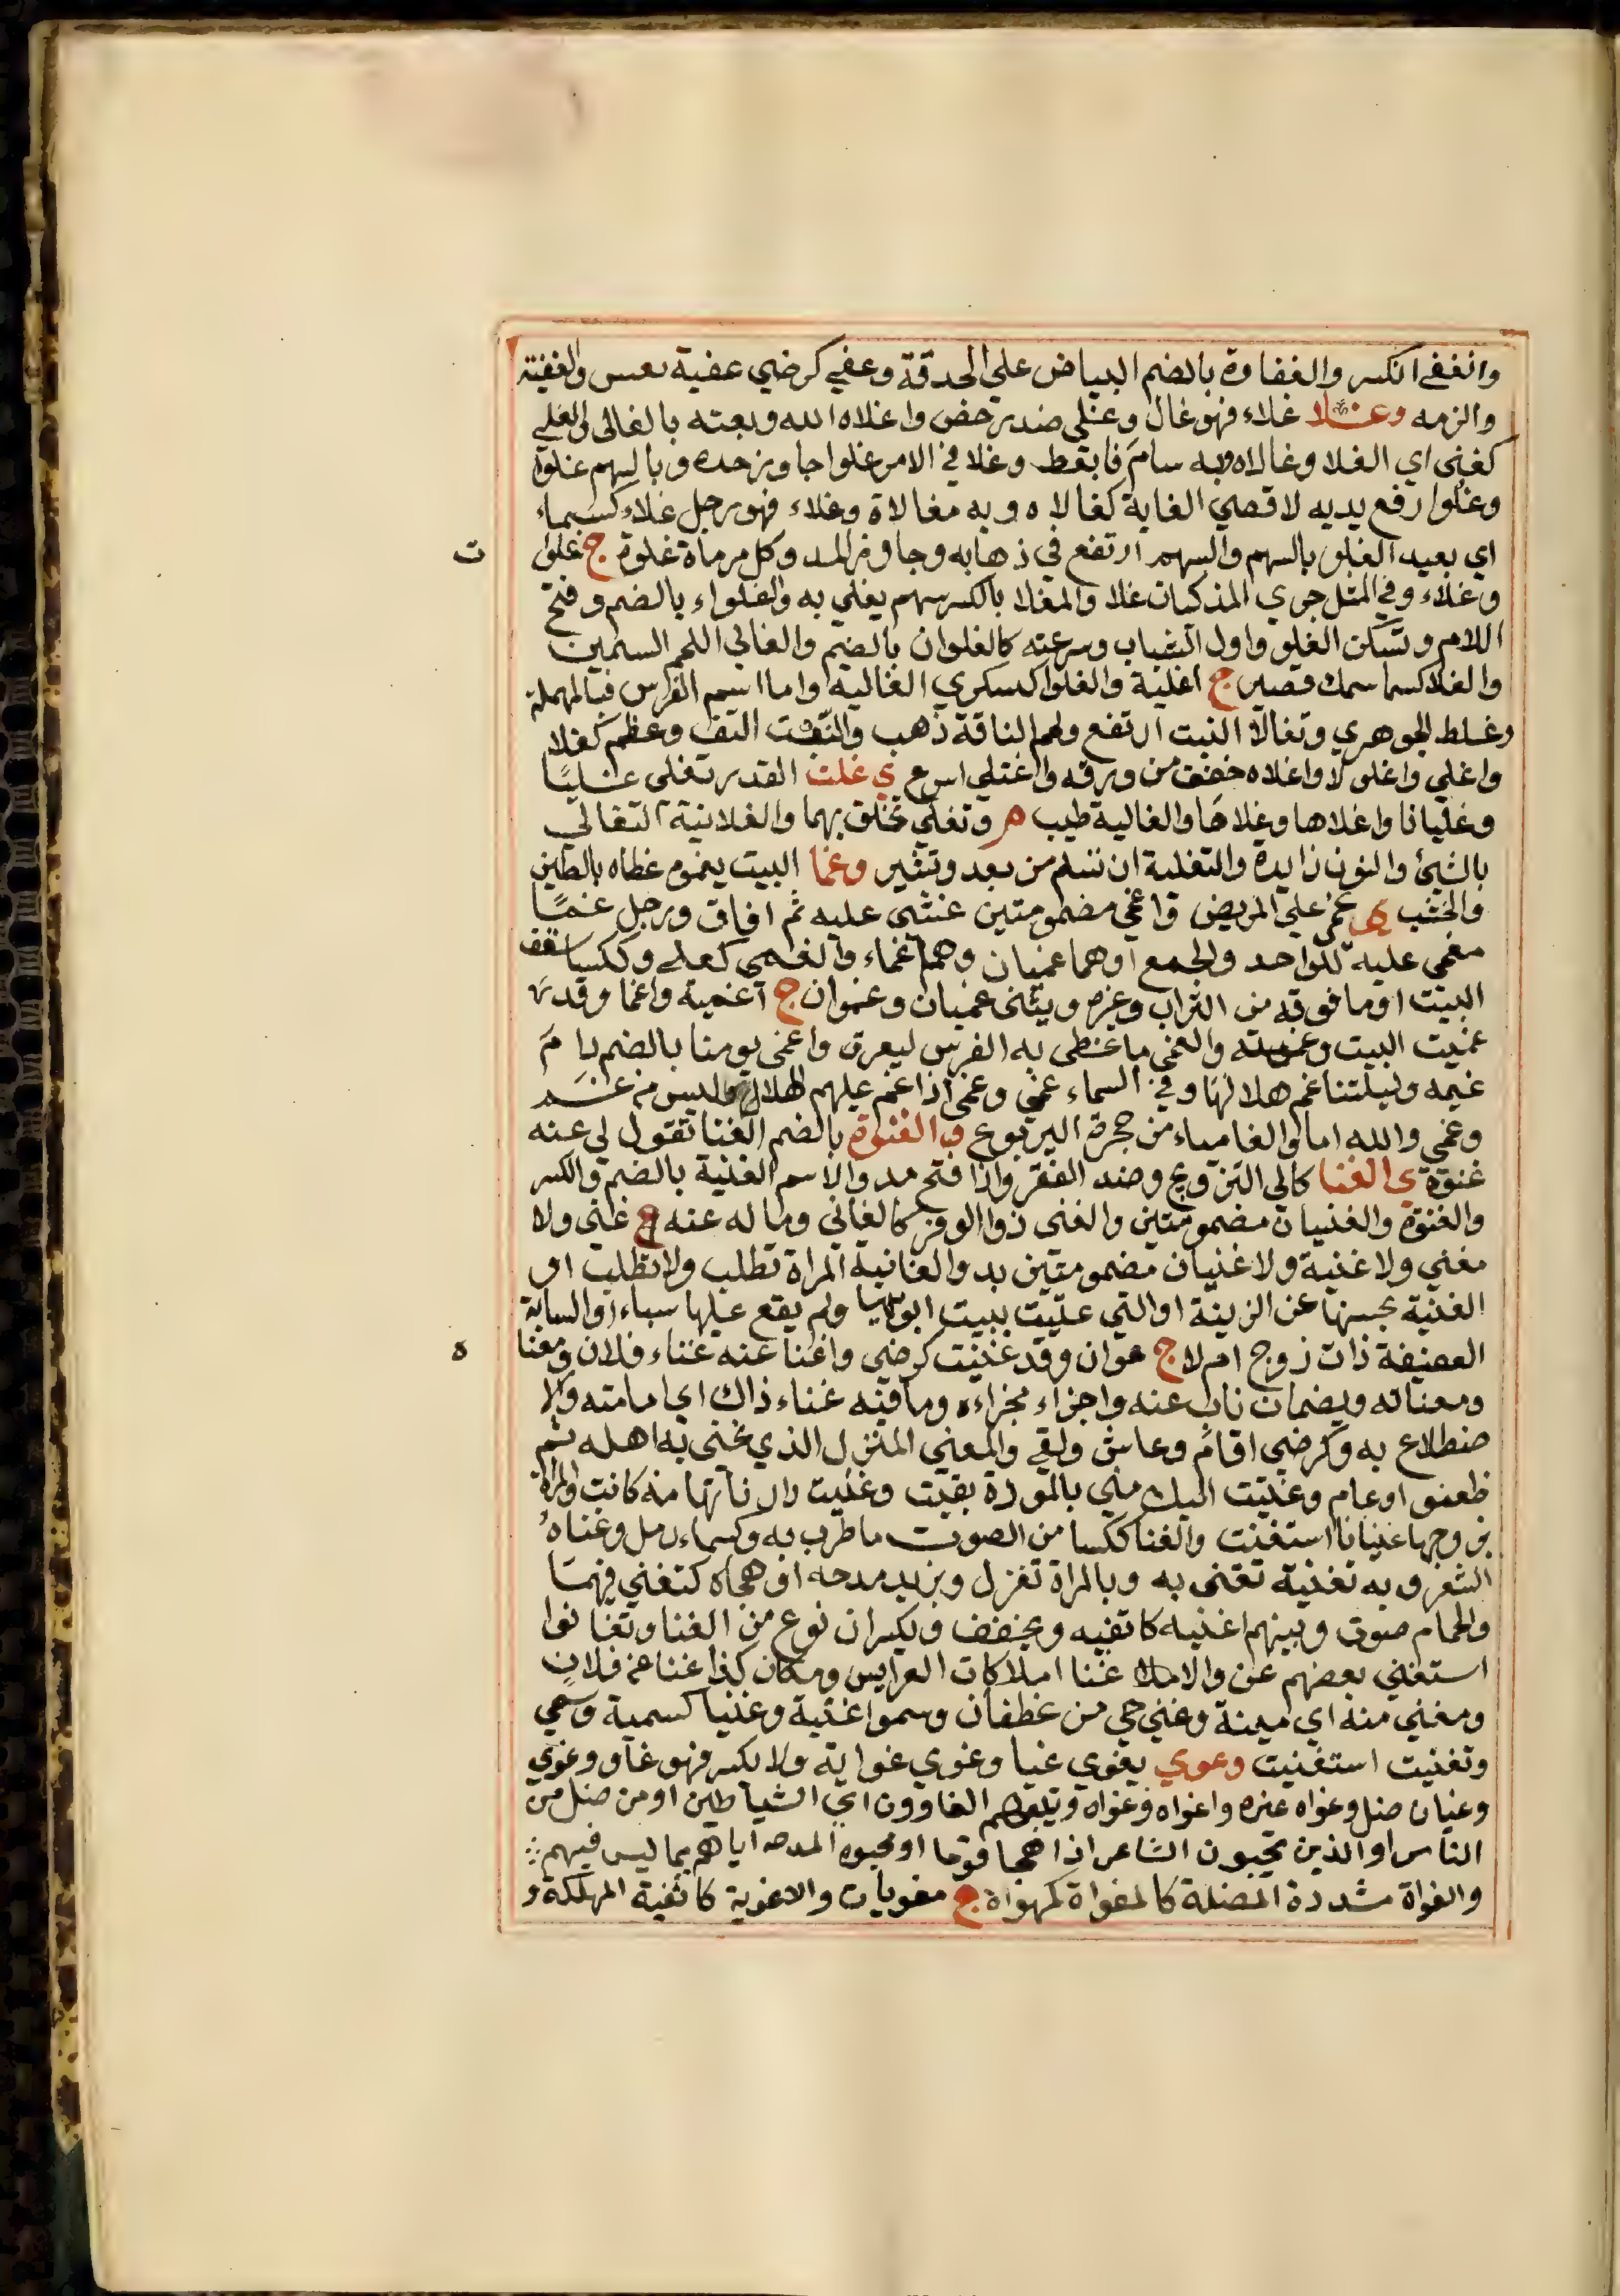 وانغفى انكسر والغفاوة بالضم البياض على الحدقة وغفي كرضي غفية نعس والغفية
والزمه وغلا غلاء فهو غال وغلي ضد رخص واغلاه الله وبعته بالغالي والغلي
كغني اي الغلا وغالاه وبه سام فابعط وغلا في الامر غلوا جاوز حده وبالسهم غلوا
وغلوا رفع يديه لاقصي الغاية كغالاه وبه مغالاة وغلاء فهو رجل غلاء كسماء
اي بعيد الغلو بالسهم والسهم ارتفع في ذهابه وجاوز المد وكل مرماة غلوة ج غلوا ت
وغلاء وفي المثل جري المذكيات غلا والمغلا بالكسر سهم يغلي به والغلواء بالضم وفتح
اللام وتسكن الغلو واول الشباب وسرعته كالغلوان بالضم والغالي اللحم السمين
والغلا كسما سمك قصير ج اغلية والغلوا كسكري الغالية واما اسم الفرس فبالمهملة
وغلط الجوهري وتغالا النبت ارتفع ولحم الناقة ذهب والتفت التف وعظم كغلا
واغلي واغلولا واغلاه خفف من ورقه واغتلي اسرع ي غلت القدر تغلى غليا
وغليانا واغلاها وغلاها والغالية طيب م وتغلي تخلق بهما والغلانية التغالي
بالشيئ والنون زايدة والتغلية ان تسلم من بعد وتشير وغما البيت يغموه غطاه بالطين
والخشب ي غمي علي المريض واغمي مضمومتين غشى عليه ثم افاق ورجل غما
مغمى عليه للواحد والجمع او هما غميان وهم اغماء والغمي كعلى وككسا سقف
البيت او ما فوقه من التراب وغيره ويثنى غميان وغموان ج اغمية واغما وقد
غميت البيت وغميته والغمى ما غطى به الفرس ليعرق واغمى يومنا بالضم دام
غيمه وليلتنا غم هلالها وفي السماء غمي وغمى اذا غم عليهم الهلال وليس من غم
وغمي والله اما والغامياء من حجرة اليربوع و الغنوة بالضم الغنا تقول لي عنه
غنوة ي الغنا كالى التزويج وضد الفقر واذا فتح مد والاسم الغنية بالضم والكسر
والغنوة والغنيان مضمومتين والغنى ذو الوفر كالغاني وما له عنه غنى ولا
مغني ولا غنية ولا غنيان مضمومتين بد والغانية المراة تطلب ولا تطلب او
الغنية بحسنها عن الزينة او التي غنيت ببيت ابويها ولم يقع عليها سباء او الشابة
العفيفة ذات زوج ام لا ج غوان وقد غنيت كرضي واغنا عنه غناء فلان ومغنا ه
ومغناته ويضمان ناب عنه واجزاء مجزاءه وما فيه غناء ذاك اي اقامته والا
ضطلاع به وكرضي اقام وعاش ولقي والمغني المنزل الذي غني به اهله ثم
ظعنوا او عام وغنيت اليك مني بالمودة بقيت وغنيت دارنا تهامة كانت والمراة
بزوجها غنيانا استغنت والغنا ككسا من الصوت ما طرب به وكسماء رمل وغناه
الشعر وبه تغنية تغنى به وبالمراة تغزل وبزيد مدحه او هجاه كتغني فيهما
والحمام صوت وبينهم اغنية كاثفية ويخفف ويكسران نوع من الغنا وتغانوا
استغني بعضهم عن والاملا غنا املاكات العرايس ومكان كذا غنا عن فلان
ومغني منه اي مينة وغني حي من غطفان وسموا غنية وغنيا كسمية وسمي
وتغنيت استغنيت وغوي يغوي غيا وغوي غواية ولا يكسر فهو غاو وغوي
وغيان ضل وغواه غيره واغواه وغواه ويتبعهم الغاوون اي الشياطين او من ضل من
الناس او الذين يحبون الشاعر اذا هجا قوما او محبوه لمدحه اياهم بما ليس فيهم
والغواة مشددة المضلة كالمغواة كمهواة ج مغويات والاغوية كاثفية المهلكة و